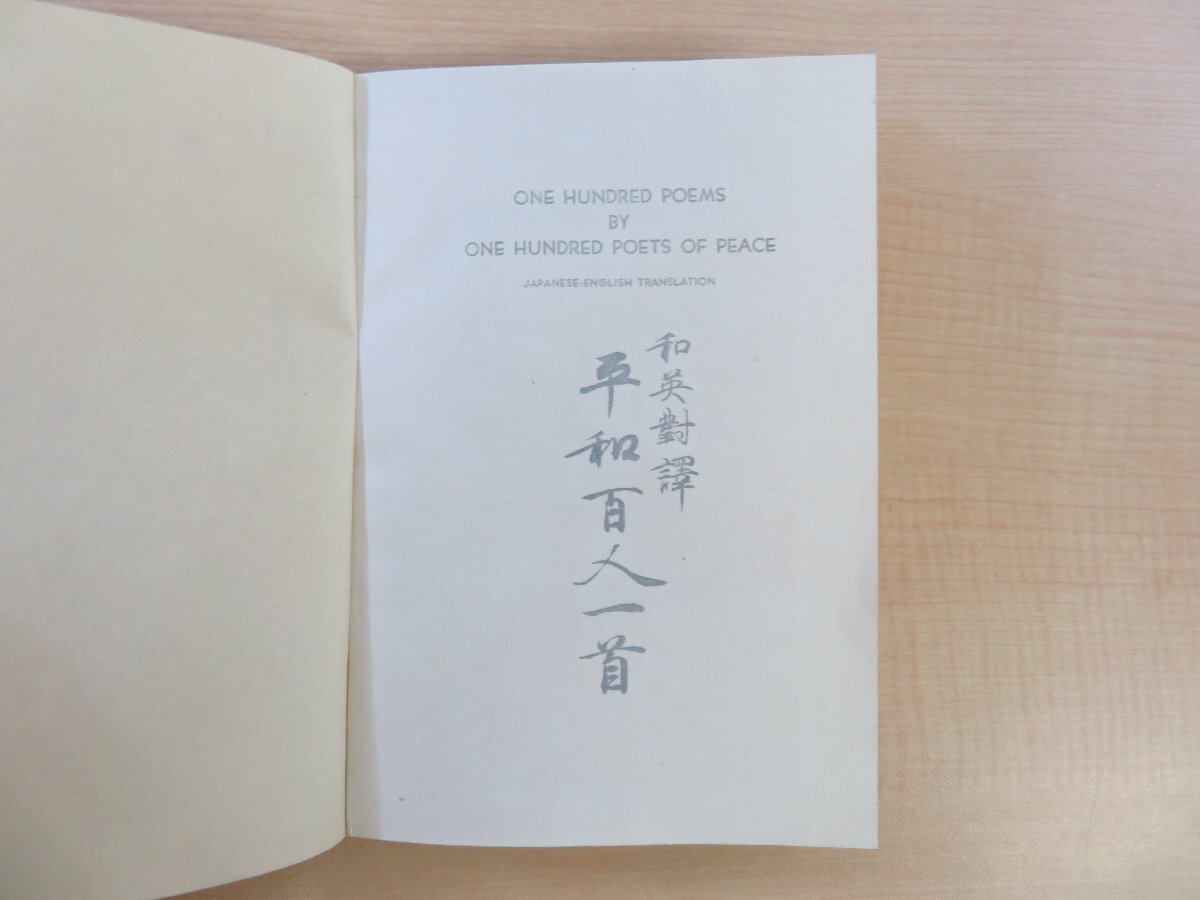 ONE HUNDRED POEMS
BY
ONE HUNDRED POETS OF PEACE
JAPANESE-ENGLISH TRANSLATION
和英對譯
平和百人一首